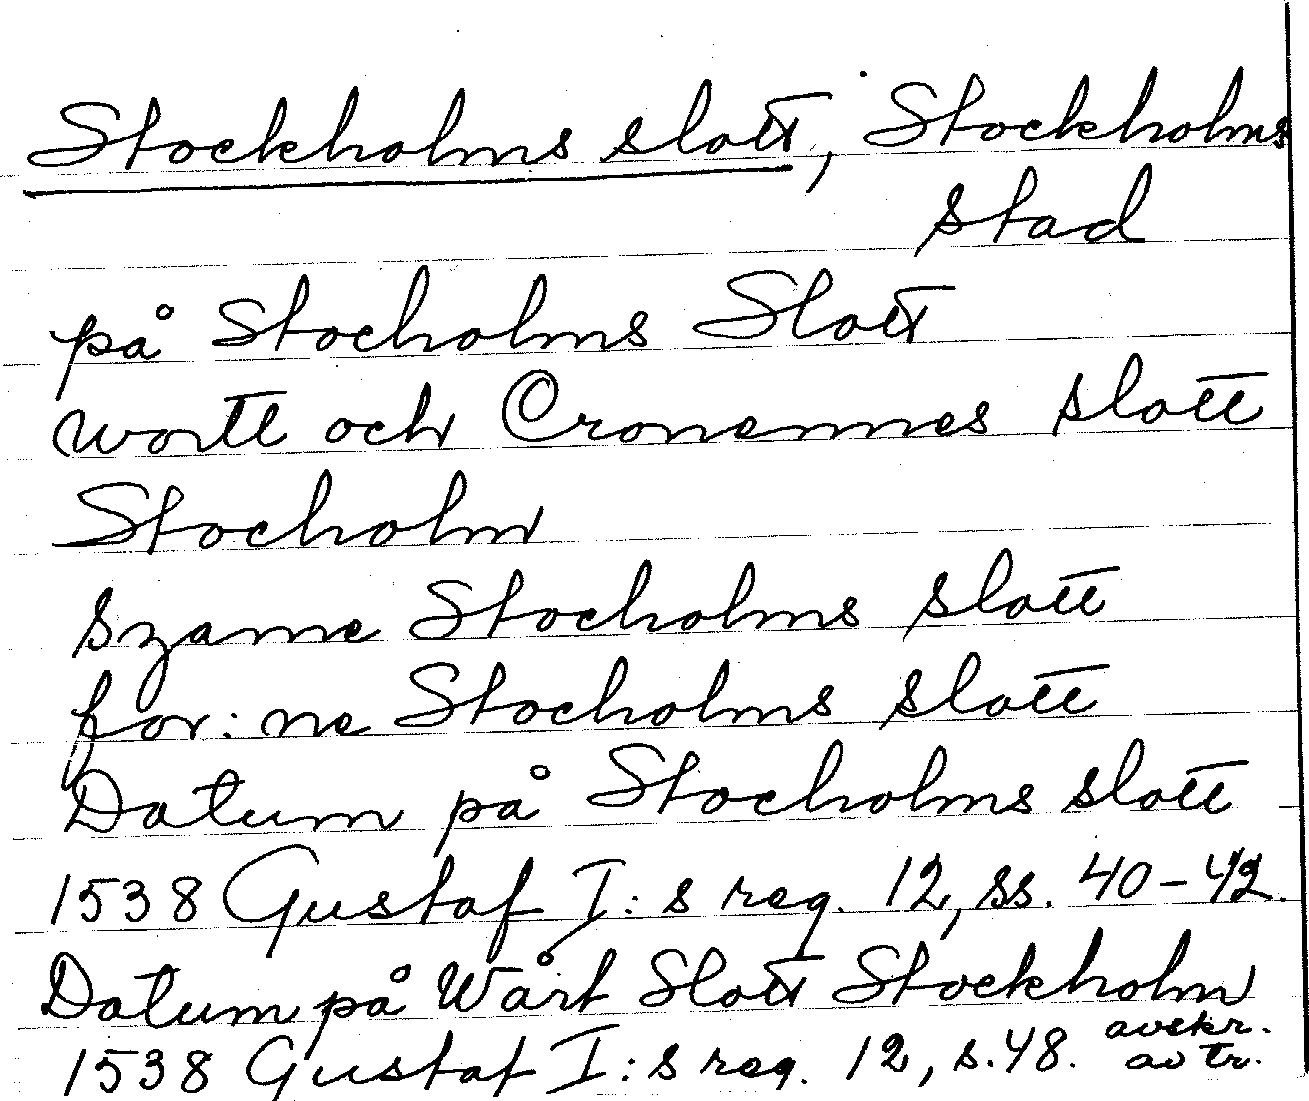 Stockholms slott, Stockholms
stad
på Stocholms Slott
wortt och Cronennes slott
Stocholm
szame Stocholms slott
for: ne Stocholms slott
Datum på Stocholms slott
1538 Gustaf I:s reg. 12, ss. 40-42.
Datum på Wårt Slott Stockholm
1538 Gustaf I:s reg. 12, s. 48. avskr.
av tr.